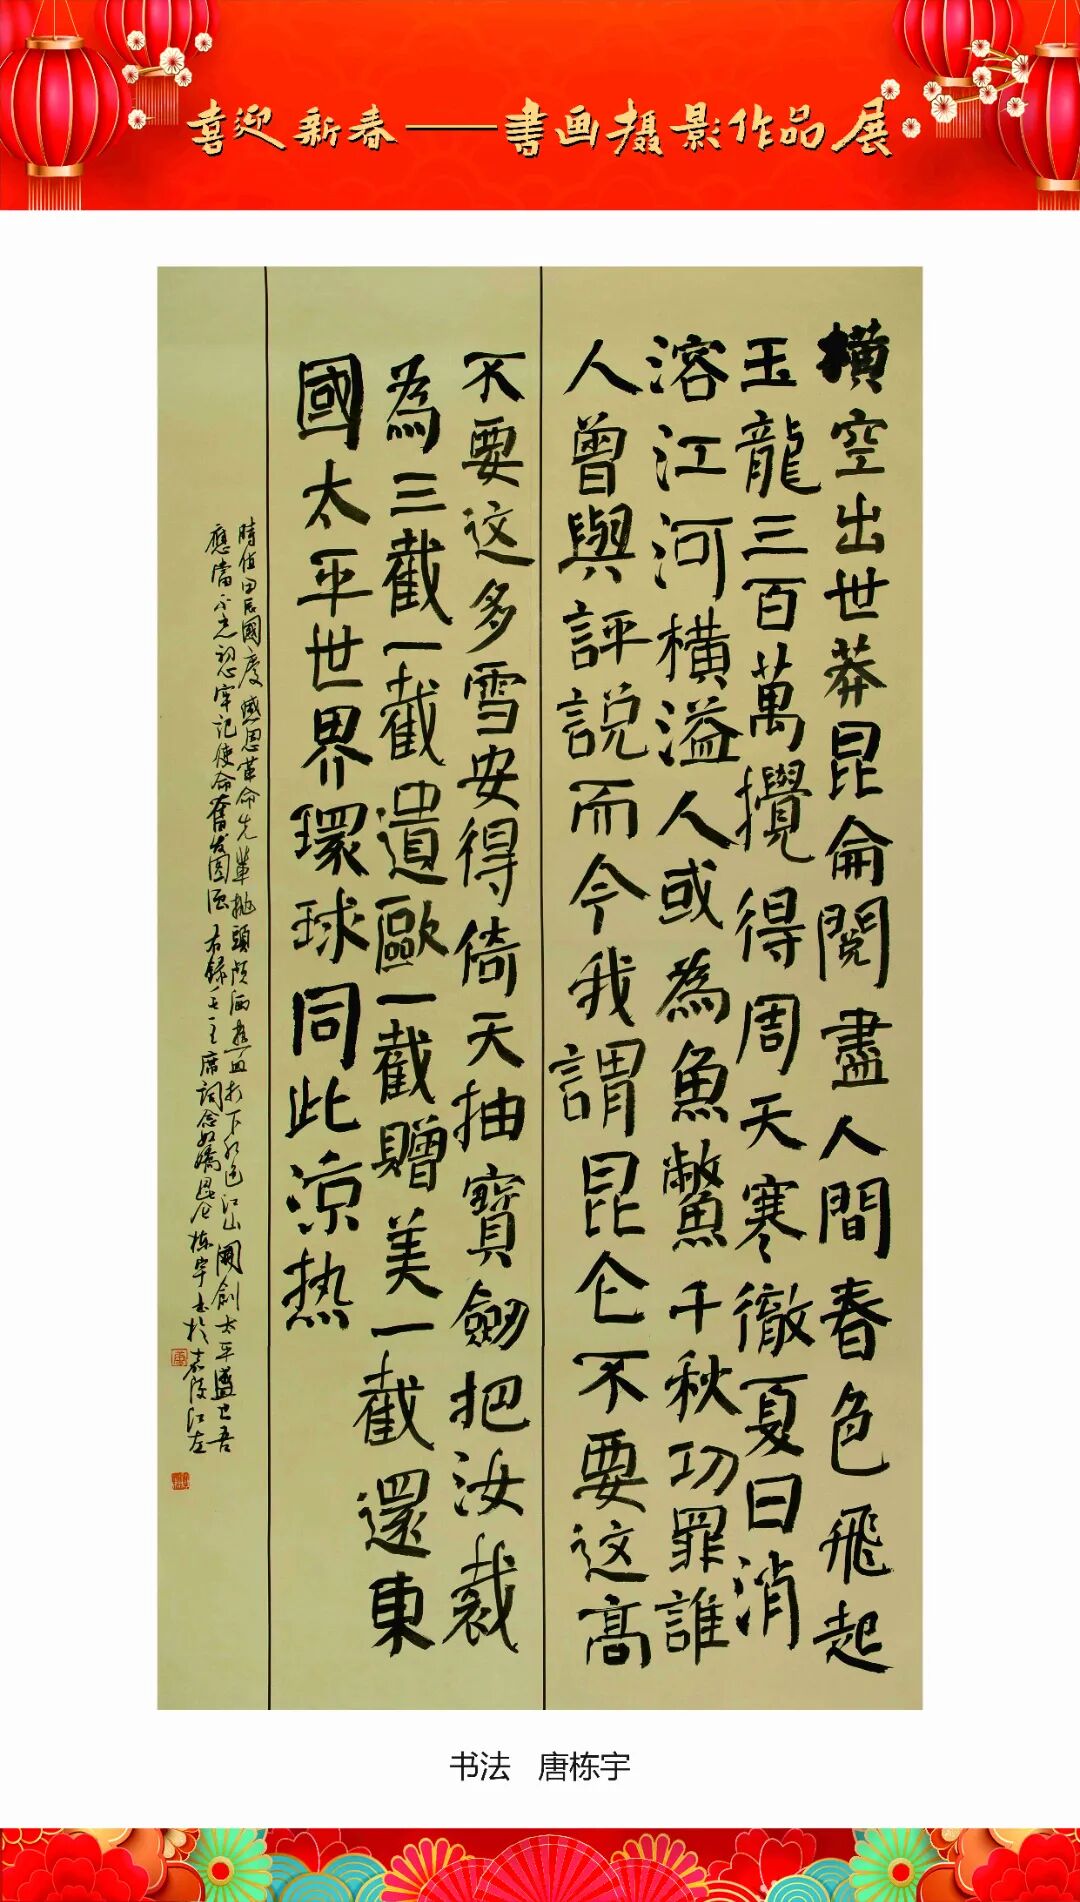 喜迎新春——书画摄影作品展
橫空出世莽昆侖閱盡人間春色飛起
玉龍三百萬攪得周天寒徹夏日消
溶江河橫溢人或為魚鱉千秋功罪誰
人曾與評說而今我謂昆仑不要这高
不要这多雪安得倚天抽寶劍把汝裁
為三截一截遺歐一截贈美一截還東
國太平世界環球同此凉热
時值國慶感恩革命先輩拋頭顱洒热血打下红色江山開創太平盛世吾
應當不忘初心牢記使命奮发图强右錄毛主席詞念奴嬌昆仑栋宇书於嘉陵江左
书法 唐栋宇